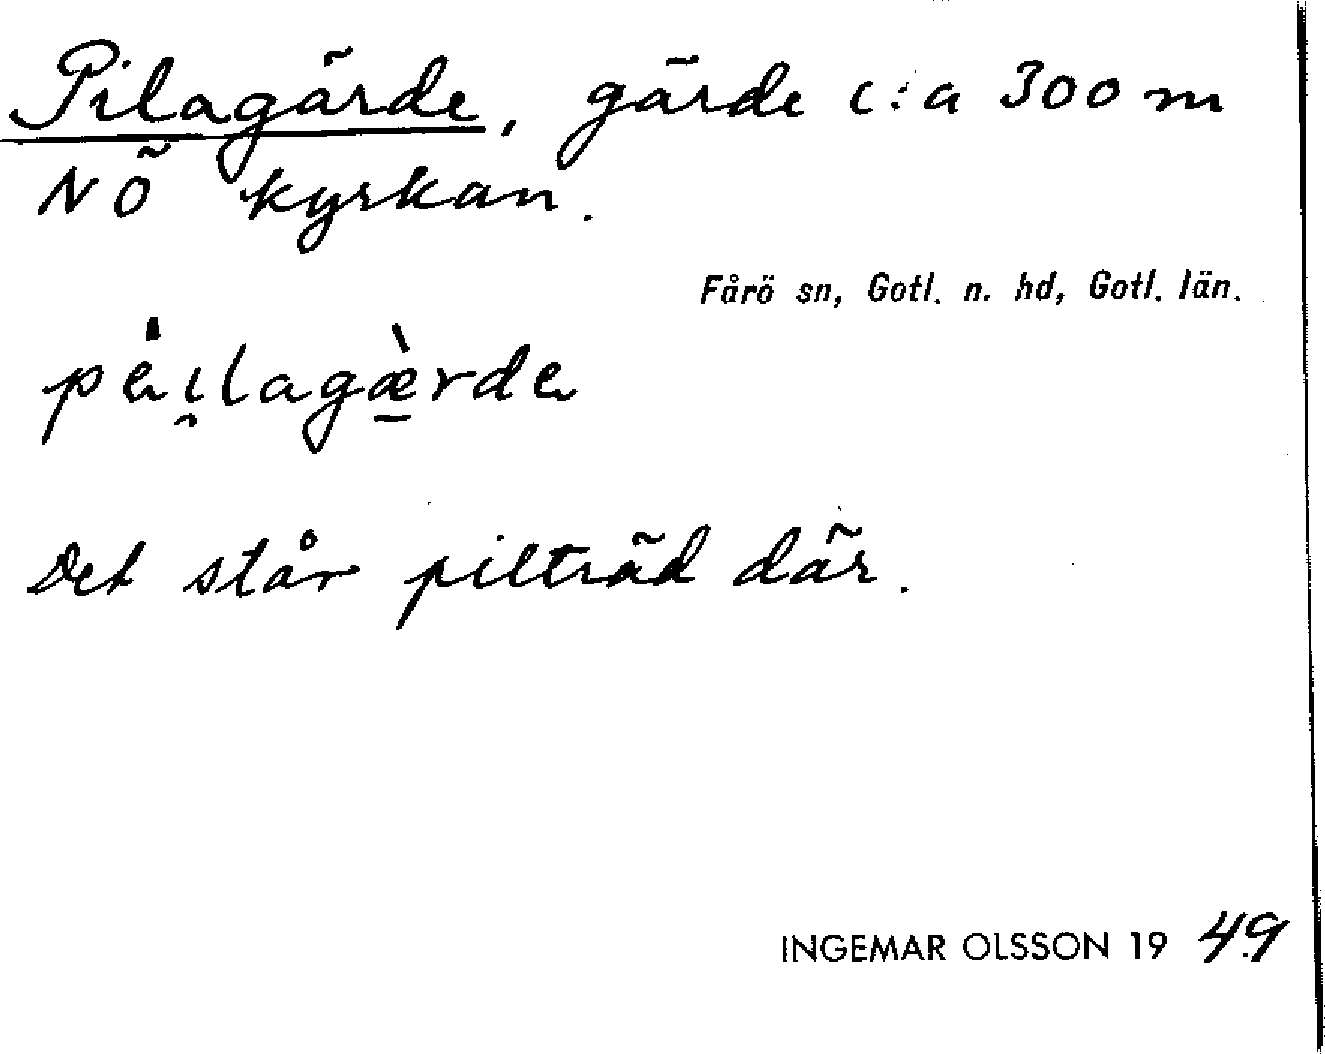 Pilagärde, gärde c:a 300 m
NÖ kyrkan.
Fårö sn, Gotl. n. hd, Gotl. län.
pä́i̯lagæ̠̀rdä
Det står pilträd där.
INGEMAR OLSSON 19 49